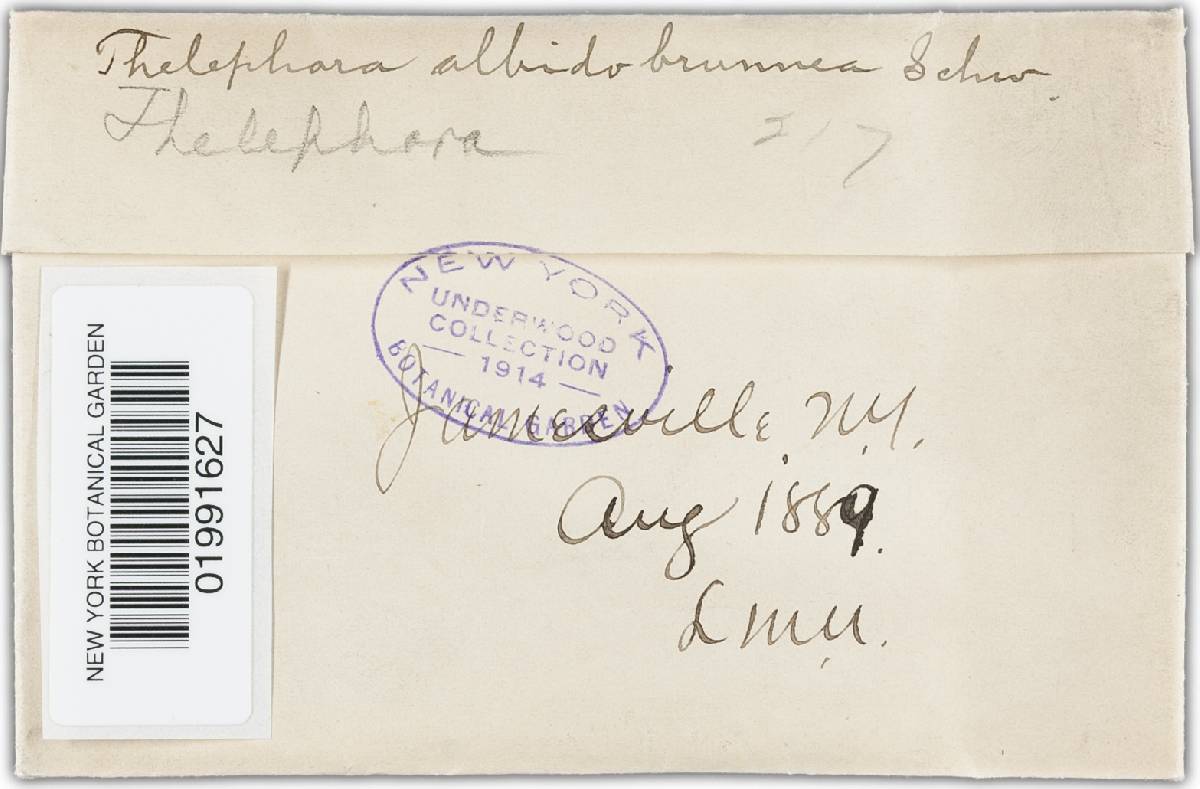 Thelephora albido brunnea Schw.
Thelephora
NEW YORK
UNDERWOOD
COLLECTION
1914
BOTANICAL GARDEN
Jamesville, N.Y.
Aug 1889.
L.M.U.
NEW YORK BOTANICAL GARDEN
01991627